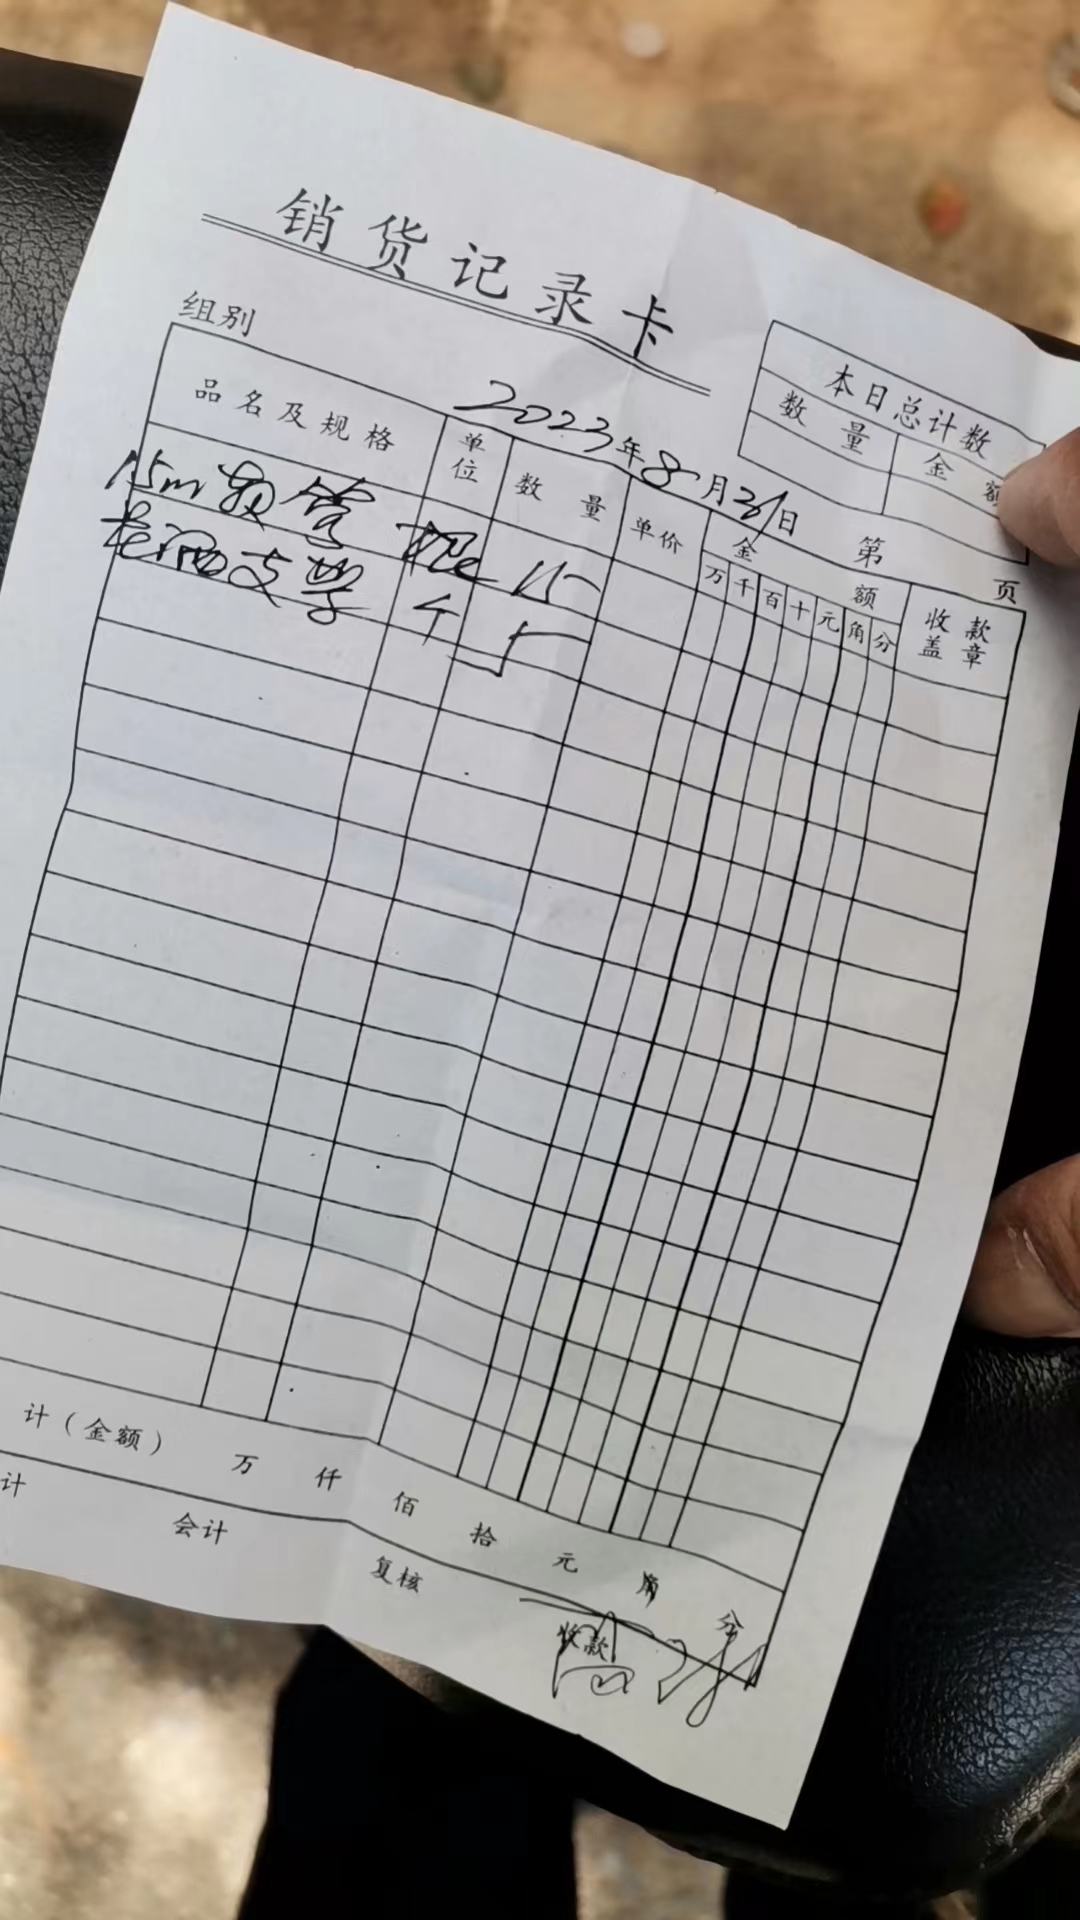 销货记录卡
组别
2023年8月31日 第 页
本日总计数
数量 金额
品名及规格 单位 数量 单价 金额 收款盖章
万 千 百 十 元 角 分
15m 管 根 15
支 个 5
计(金额) 万 仟 佰 拾 元 角 分
计 会计 复核 收款